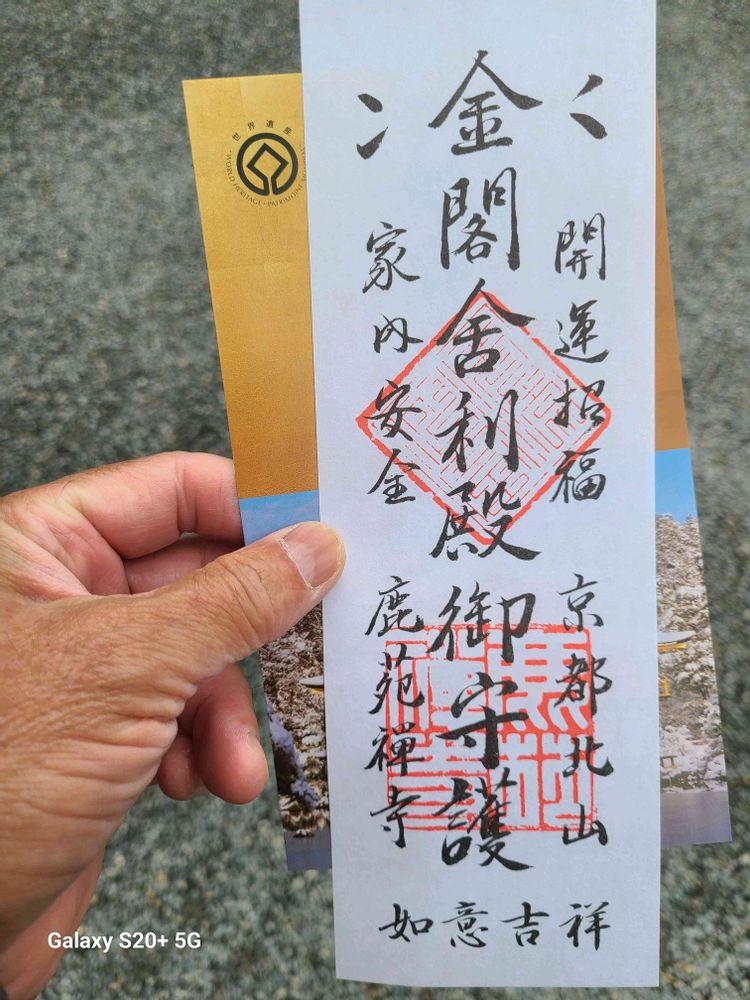 金閣舍利殿御守護
開運招福
京都北山
家内安全
鹿苑禅寺
如意吉祥
世界遺産
WORLD HERITAGE · PATRIMOINE
Galaxy S20+ 5G